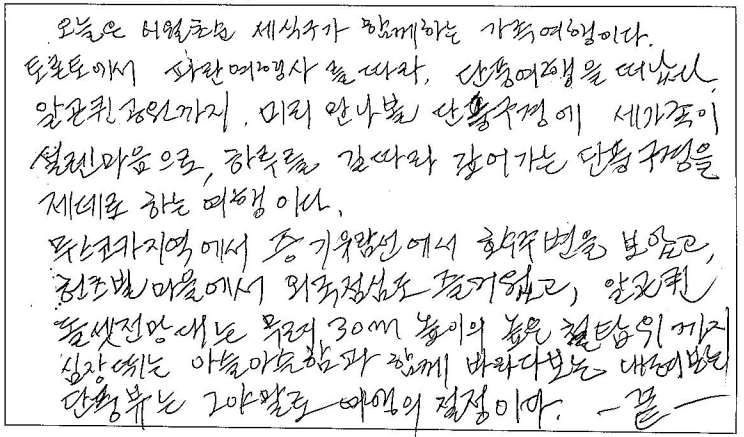 오늘은 시월초순 세식구가 함께하는 가족여행이다.
토론토에서 파란여행사를 따라, 단풍여행을 떠났다.
알곤퀸 공원까지. 미리 만나볼 단풍구경에 세가족이
설렌마음으로, 하루를 길따라 깊어가는 단풍구경을
제데로 하는 여행이다.
무스코카지역에서 증기유람선에서 호수주변을 보았고,
헌츠빌 마을에서 외국점심도 즐거웠고, 알곤퀸
돌셋전망대는 무려 30m 높이의 높은 철탑위까지
심장뛰는 아슬아슬함과 함께 바라다보는 내려다보는
단풍뷰는 그야말로 여행의 절정이다. -끝-